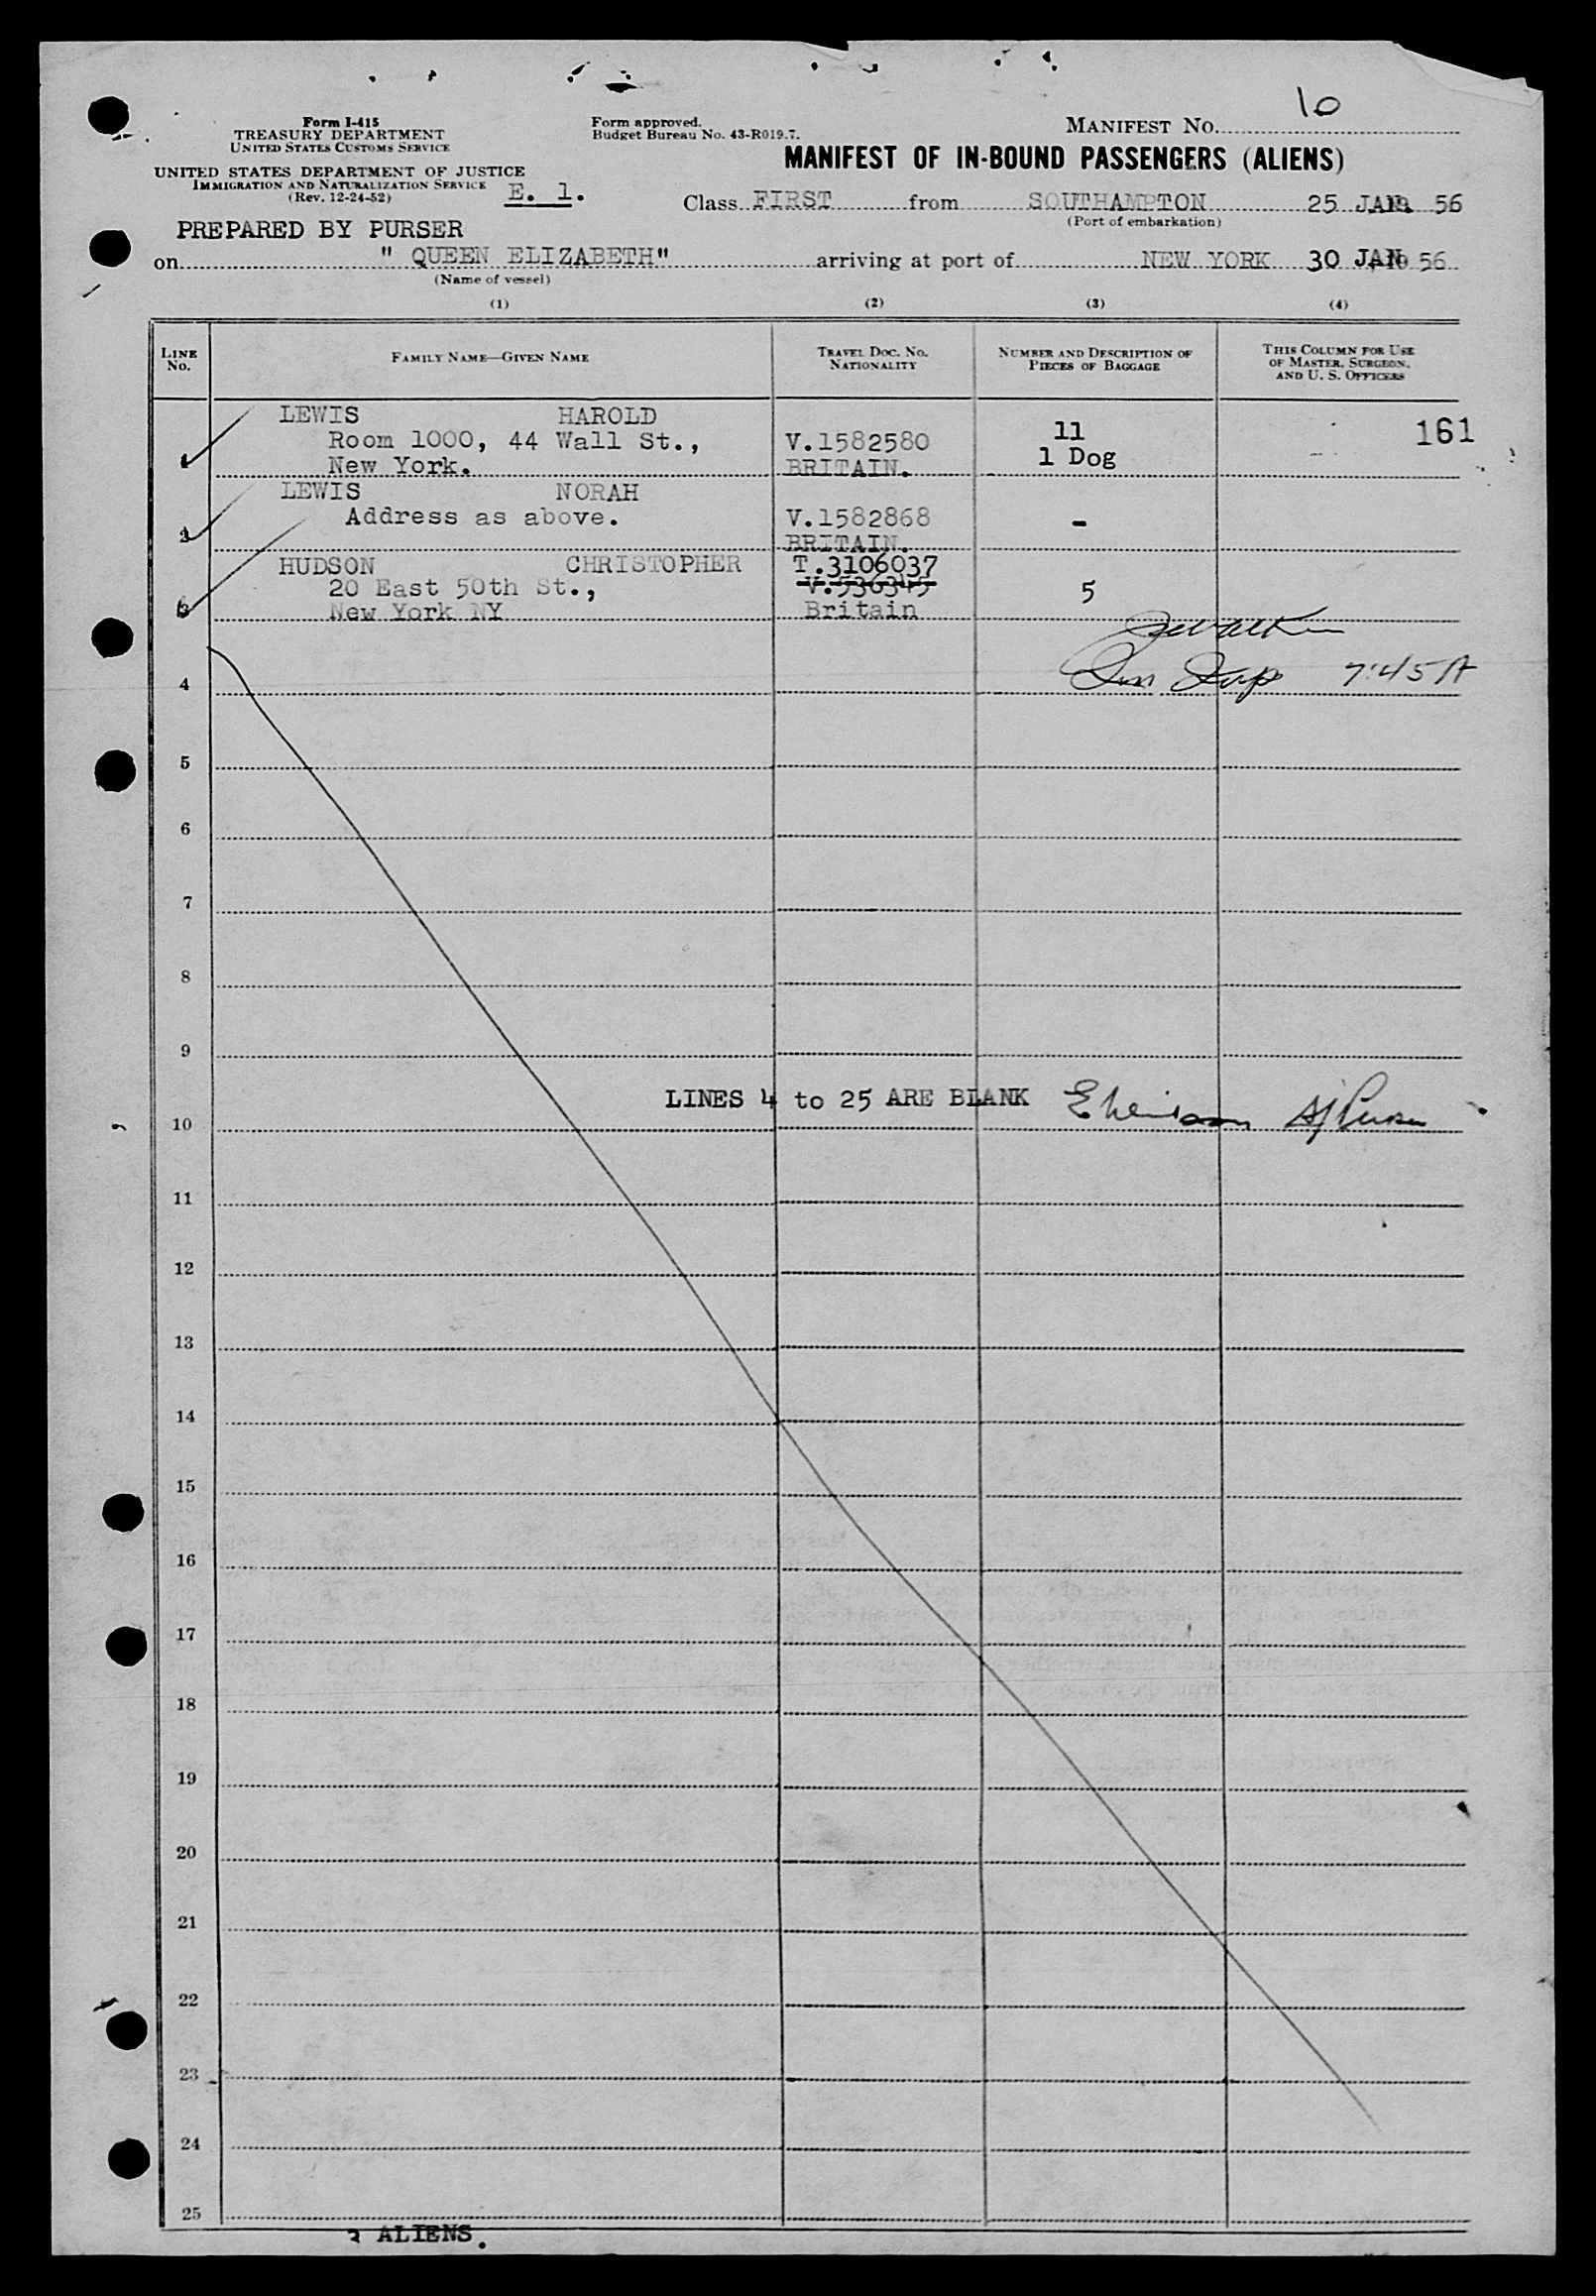 10
Form I-415
TREASURY DEPARTMENT
UNITED STATES CUSTOMS SERVICE
Form approved.
Budget Bureau No. 43-R019.7.
MANIFEST NO.
MANIFEST OF IN-BOUND PASSENGERS (ALIENS)
UNITED STATES DEPARTMENT OF JUSTICE
IMMIGRATION AND NATURALIZATION SERVICE
(Rev. 12-24-52)
E. 1.
Class FIRST from SOUTHAMPTON 25 JAN 56
(Port of embarkation)
PREPARED BY PURSER
on " QUEEN ELIZABETH" arriving at port of NEW YORK 30 JAN 1956
(Name of vessel)
(1) (2) (3) (4)
LINE NO.
FAMILY NAME—GIVEN NAME
TRAVEL DOC. NO.
NATIONALITY
NUMBER AND DESCRIPTION OF
PIECES OF BAGGAGE
THIS COLUMN FOR USE
OF MASTER, SURGEON,
AND U. S. OFFICERS
LEWIS HAROLD 11 161
Room 1000, 44 Wall St., V.1582580 1 Dog
1 New York. BRITAIN.
LEWIS NORAH
Address as above. V.1582868 -
2 BRITAIN.
HUDSON CHRISTOPHER T.3106037
20 East 50th St., V.536345 5
3 New York NY Britain
4 7:45 A
5
6
7
8
9
LINES 4 to 25 ARE BLANK
10 Purser
11
12
13
14
15
16
17
18
19
20
21
22
23
24
25
3 ALIENS.